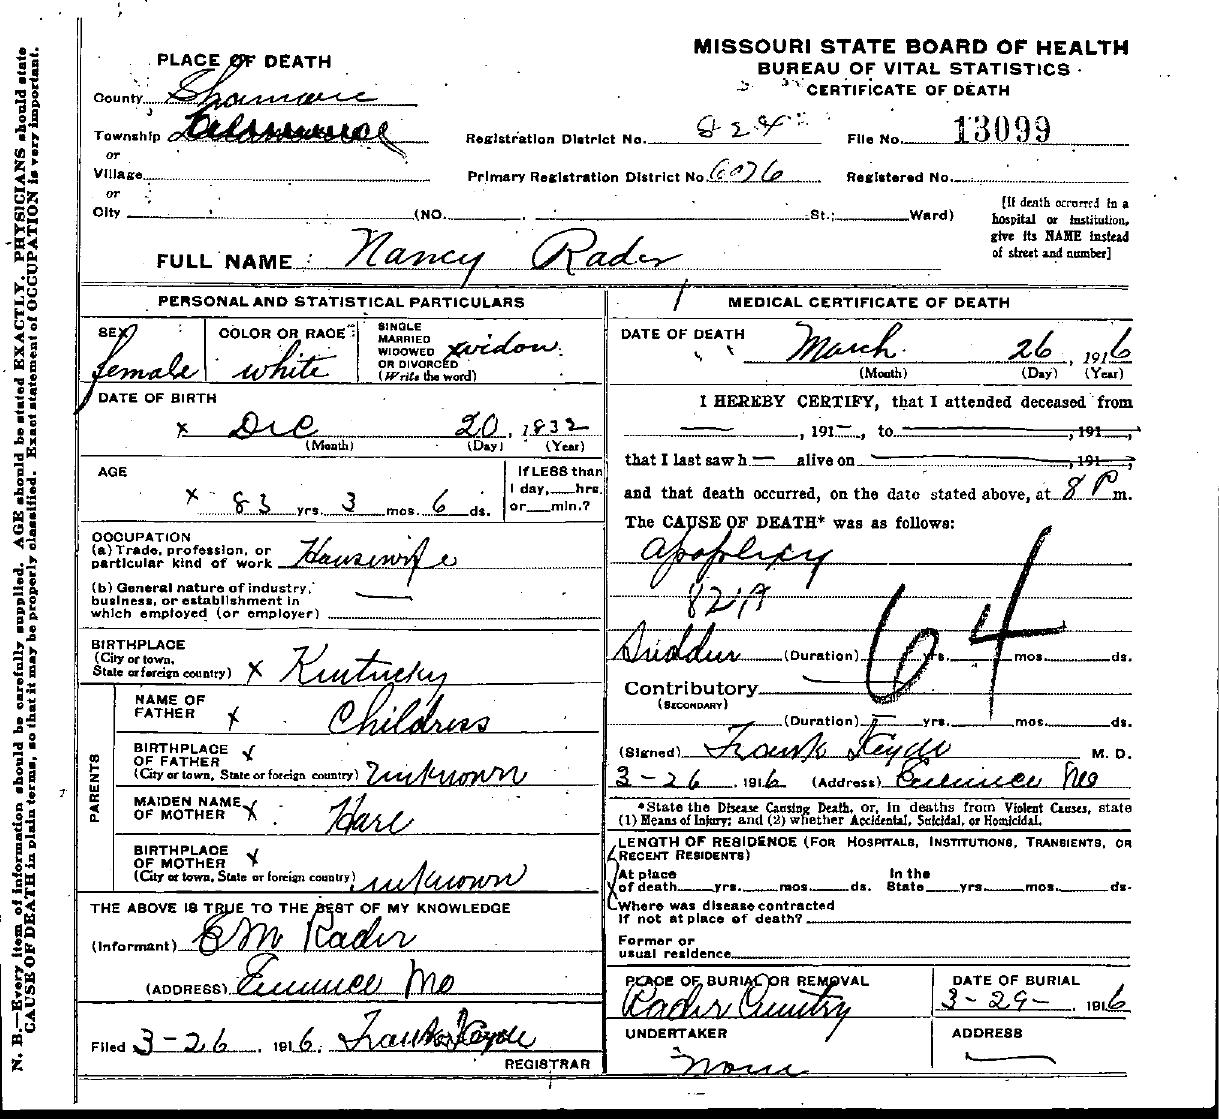 MISSOURI STATE BOARD OF HEALTH
BUREAU OF VITAL STATISTICS
CERTIFICATE OF DEATH
PLACE OF DEATH
County
Township
or
Village
or
City (NO. St.; Ward)
Registration District No. 824 File No. 13099
Primary Registration District No. 6076 Registered No.
[If death occurred in a
hospital or institution,
give its NAME instead
of street and number]
FULL NAME Nancy Rader
PERSONAL AND STATISTICAL PARTICULARS
SEX female
COLOR OR RACE white
SINGLE
MARRIED
WIDOWED
OR DIVORCED
(Write the word)
widow
DATE OF BIRTH
x Dec 20, 1832
(Month) (Day) (Year)
AGE
x 83 yrs. 3 mos. 6 ds.
If LESS than
1 day, hrs.
or min.?
OCCUPATION
(a) Trade, profession, or
particular kind of work Housewife
(b) General nature of industry,
business, or establishment in
which employed (or employer)
BIRTHPLACE
(City or town,
State or foreign country) x Kentucky
PARENTS
NAME OF
FATHER x Childress
BIRTHPLACE
OF FATHER x
(City or town, State or foreign country) unknown
MAIDEN NAME
OF MOTHER x Hare
BIRTHPLACE
OF MOTHER x
(City or town, State or foreign country) unknown
THE ABOVE IS TRUE TO THE BEST OF MY KNOWLEDGE
(Informant) E M Rader
(ADDRESS) Eminence Mo
Filed 3-26, 1916. Frank Hyde
REGISTRAR
MEDICAL CERTIFICATE OF DEATH
DATE OF DEATH March 26, 1916
(Month) (Day) (Year)
I HEREBY CERTIFY, that I attended deceased from
—, 191—, to —, 191—,
that I last saw h— alive on —, 191—,
and that death occurred, on the date stated above, at 8 P m.
The CAUSE OF DEATH* was as follows:
apoplexy
82A
64
Sudden (Duration) yrs. mos. ds.
Contributory
(SECONDARY)
(Duration) yrs. mos. ds.
(Signed) Frank Hyde M. D.
3-26, 1916 (Address) Eminence Mo
*State the Disease Causing Death, or, in deaths from Violent Causes, state
(1) Means of Injury; and (2) whether Accidental, Suicidal, or Homicidal.
LENGTH OF RESIDENCE (FOR HOSPITALS, INSTITUTIONS, TRANSIENTS, OR
RECENT RESIDENTS)
At place In the
of death yrs. mos. ds. State yrs. mos. ds.
Where was disease contracted
if not at place of death?
Former or
usual residence
PLACE OF BURIAL OR REMOVAL
Rader
DATE OF BURIAL
3-29-, 1916
UNDERTAKER
None
ADDRESS
N. B.—Every item of information should be carefully supplied. AGE should be stated EXACTLY. PHYSICIANS should state
CAUSE OF DEATH in plain terms, so that it may be properly classified. Exact statement of OCCUPATION is very important.